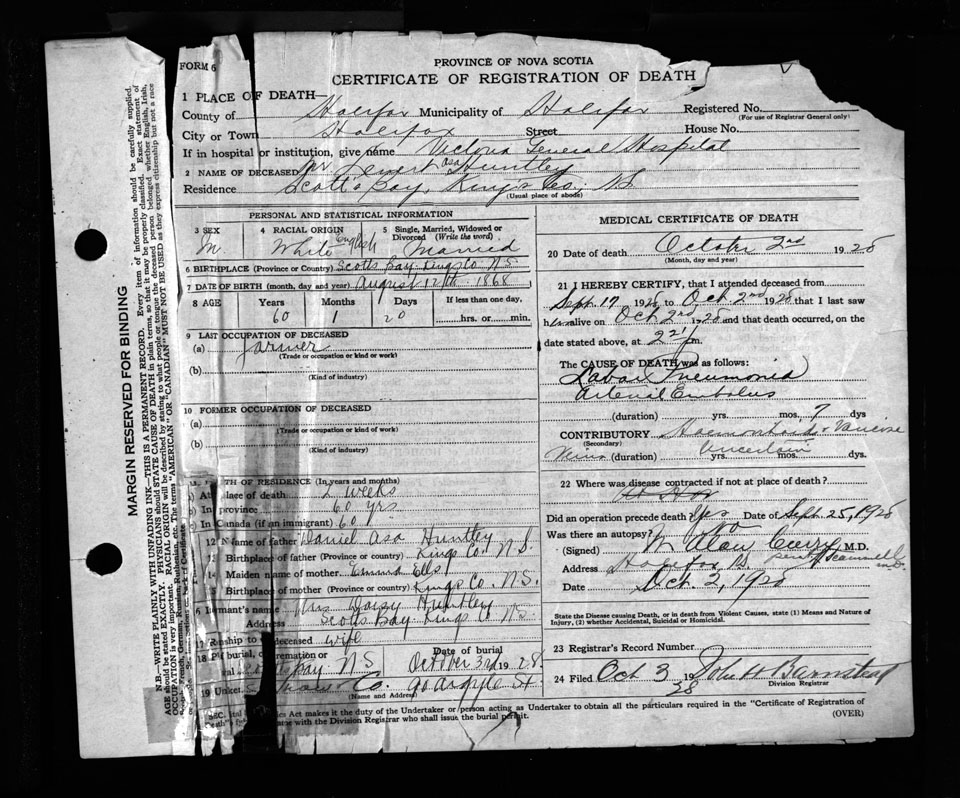 FORM 6
PROVINCE OF NOVA SCOTIA
CERTIFICATE OF REGISTRATION OF DEATH
1 PLACE OF DEATH
County of Halifax Municipality of Halifax Registered No.
(For use of Registrar General only)
City or Town Halifax Street House No.
If in hospital or institution, give name Victoria General Hospital
2 NAME OF DECEASED Asa Huntley
Residence Scotts Bay, Kings Co, N.S.
(Usual place of abode)
PERSONAL AND STATISTICAL INFORMATION
3 SEX M
4 RACIAL ORIGIN White English
5 Single, Married, Widowed or Divorced (Write the word) Married
6 BIRTHPLACE (Province or Country) Scotts Bay Kings Co. N.S.
7 DATE OF BIRTH (month, day and year) August 12th 1868
8 AGE Years Months Days If less than one day,
60 1 20 hrs. or min.
9 LAST OCCUPATION OF DECEASED
(a) Farmer
(Trade or occupation or kind of work)
(b)
(Kind of industry)
10 FORMER OCCUPATION OF DECEASED
(a)
(Trade or occupation or kind of work)
(b)
(Kind of industry)
TH OF RESIDENCE (In years and months)
At place of death 2 weeks
In province 60 yrs
In Canada (if an immigrant) 60
12 Name of father Daniel Asa Huntley
13 Birthplace of father (Province or country) Kings Co. N.S.
14 Maiden name of mother Emma Ells
Birthplace of mother (Province or country) Kings Co. N.S.
ormant's name Mrs Daisy Huntley
Address Scotts Bay Kings Co N.S.
17 R onship to deceased wife
18 Pl burial, cremation or Date of burial
al Bay N.S October 3rd 1928
19 Under Co. 90 Argyle St.
(Name and Address)
MEDICAL CERTIFICATE OF DEATH
20 Date of death October 2nd 1928
(Month, day and year)
21 I HEREBY CERTIFY, that I attended deceased from
Sept. 17 1928 to Oct 2nd 1928 that I last saw
him alive on Oct 2nd 1928 and that death occurred, on
date stated above, at m.
The CAUSE OF DEATH was as follows:
Lobar Pneumonia
Arterial Embolus
(duration) yrs. mos. 7 dys
CONTRIBUTORY Haemorrhoids & Varicose
(Secondary)
Veins (duration) Uncertain yrs. mos. dys.
22 Where was disease contracted if not at place of death?
Did an operation precede death yes Date of Sept. 25, 1928
Was there an autopsy? No
(Signed) Alan M.D.
Address Halifax
Date Oct. 2, 1928
State the Disease causing Death, or in death from Violent Causes, state (1) Means and Nature of
Injury, (2) whether Accidental, Suicidal or Homicidal.
23 Registrars Record Number
24 Filed Oct 3 1928 John H Barnstead
Division Registrar
Act makes it the duty of the Undertaker or person acting as Undertaker to obtain all the particulars required in the "Certificate of Registration of
Death" with the Division Registrar who shall issue the burial permit.
(OVER)
MARGIN RESERVED FOR BINDING
N.B.—WRITE PLAINLY WITH UNFADING INK—THIS IS A PERMANENT RECORD. Every item of information should be carefully supplied.
AGE should be stated EXACTLY. PHYSICIANS should STATE CAUSE OF DEATH in plain terms, so that it may be properly classified. Exact statement of
OCCUPATION is very important. RACIAL ORIGIN will be described by stating to what people or tongue the deceased person belonged, whether English, Irish,
French, German, Russian, Ruthenian, etc. The terms "AMERICAN" or "CANADIAN" MUST NOT BE USED as they express citizenship but not a race